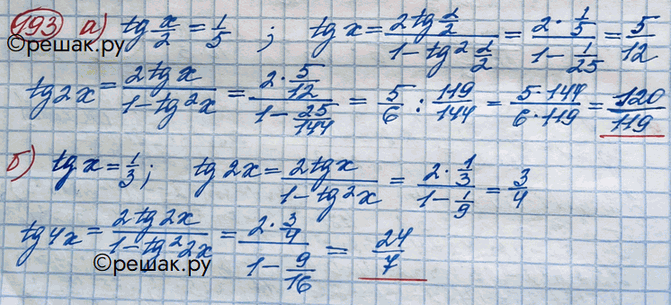 193 а) tg x/2 = 1/5 ; tg x = (2 tg x/2)/(1 - tg² x/2) = (2 · 1/5)/(1 - 1/25) = 5/12
©решак.ру
tg 2x = (2 tg x)/(1 - tg² x) = (2 · 5/12)/(1 - 25/144) = 5/6 : 119/144 = (5 · 144)/(6 · 119) = 120/119
б) tg x = 1/3 ; tg 2x = (2 tg x)/(1 - tg² x) = (2 · 1/3)/(1 - 1/9) = 3/4
tg 4x = (2 tg 2x)/(1 - tg² 2x) = (2 · 3/4)/(1 - 9/16) = 24/7
©решак.ру